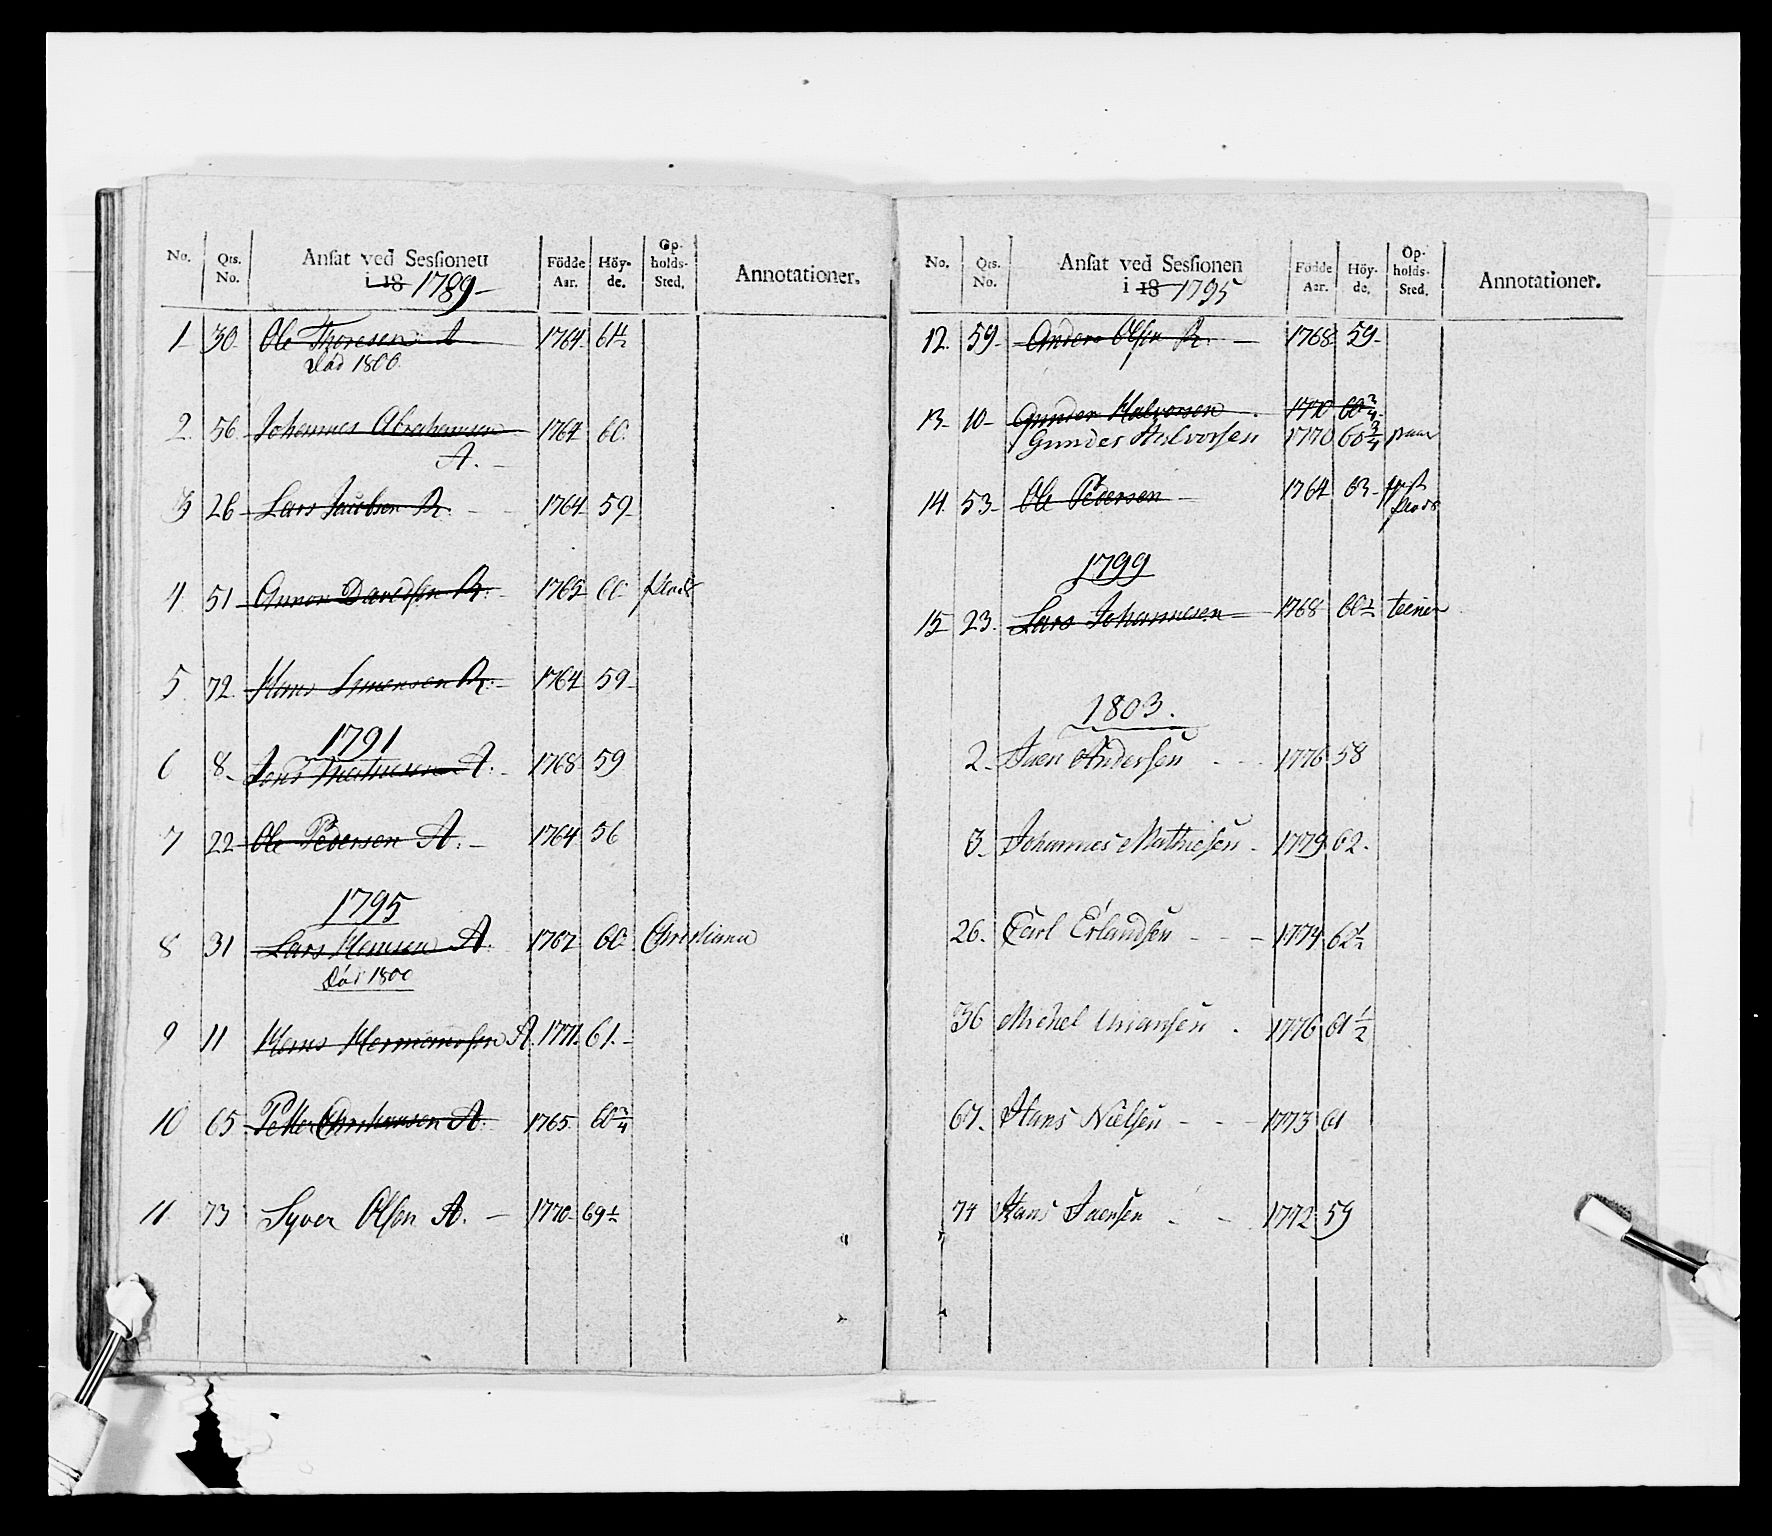 No. Qts. No. Ansat ved Sessionen i 18 1789 Födde Aar. Höyde. Opholds-Sted. Annotationer.
1 30 Ole Thoresen A 1764 61½
Död 1800
2 56 Johannes Abrahamsen 1764 60
A.
3 26 Lars Jacobsen R. 1764 59
4 51 Gunor Davidsen R. 1765 60
5 72 Hans Simensen R. 1764 59
1791
6 8 A. 1768 59
7 22 Ole Pedersen A. 1764 56
1795
8 31 Lars Hansen A. 1767 60 Christiania
Död 1800
9 11 Hans Hermansen A 1771 61
10 65 Petter Christiansen A. 1765 60¾
11 73 Syver Olsen A. 1770 69½
No. Qts. No. Ansat ved Sessionen i 18 1795 Födde Aar. Höyde. Opholds-Sted. Annotationer.
12 59 Anders Olsen R. 1768 59
13 10 Gunder Halvorsen 1770 60¾
Gunder Halvorsen 1770 60¾
14 53 Ole Pedersen 1764 63
1799
15 23 Lars Johannesen 1768 60½ teener
1803.
2 Jaen Andersen 1776 58
3 Johannes Mathiesen 1779 62
26. Carl Erlandsen 1774 62½
36 Michel Uriansen 1776 61½
67 Hans Nielsen 1773 61
74 Hans Jaensen 1772 59